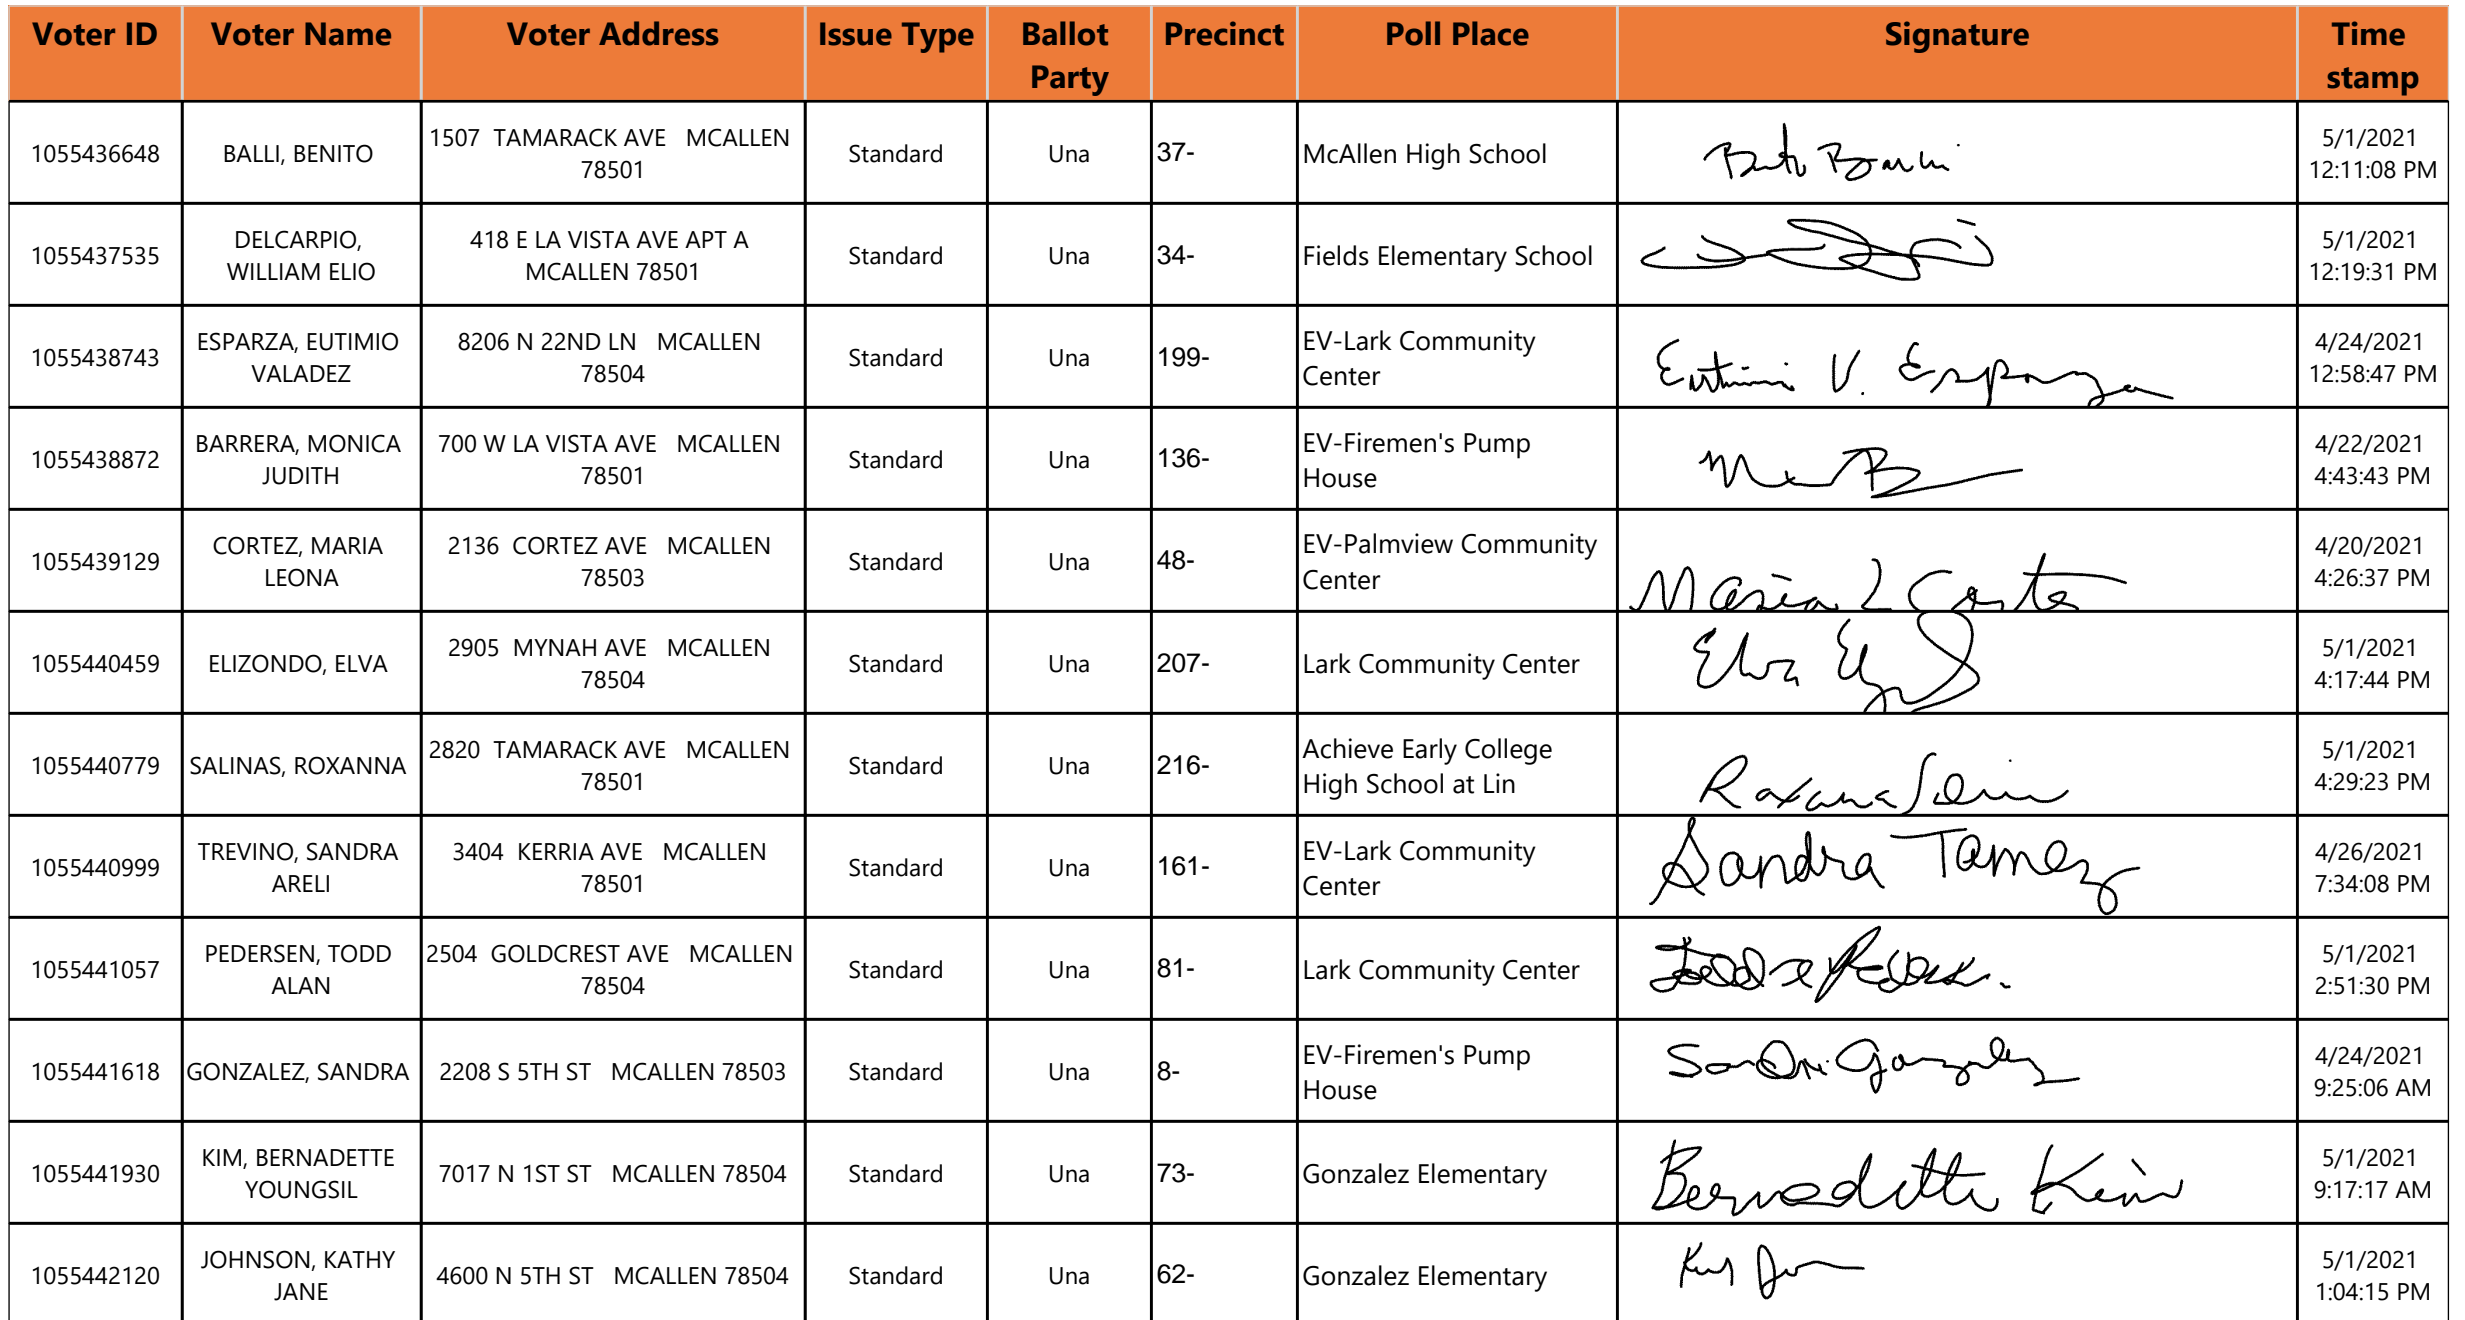 Voter ID Voter Name Voter Address Issue Type Ballot Party Precinct Poll Place Signature Time stamp
1055436648 BALLI, BENITO 1507 TAMARACK AVE MCALLEN 78501 Standard Una 37- McAllen High School 5/1/2021 12:11:08 PM
1055437535 DELCARPIO, WILLIAM ELIO 418 E LA VISTA AVE APT A MCALLEN 78501 Standard Una 34- Fields Elementary School 5/1/2021 12:19:31 PM
1055438743 ESPARZA, EUTIMIO VALADEZ 8206 N 22ND LN MCALLEN 78504 Standard Una 199- EV-Lark Community Center Eutimio V. Esparza 4/24/2021 12:58:47 PM
1055438872 BARRERA, MONICA JUDITH 700 W LA VISTA AVE MCALLEN 78501 Standard Una 136- EV-Firemen's Pump House 4/22/2021 4:43:43 PM
1055439129 CORTEZ, MARIA LEONA 2136 CORTEZ AVE MCALLEN 78503 Standard Una 48- EV-Palmview Community Center Maria L Cortez 4/20/2021 4:26:37 PM
1055440459 ELIZONDO, ELVA 2905 MYNAH AVE MCALLEN 78504 Standard Una 207- Lark Community Center Elva 5/1/2021 4:17:44 PM
1055440779 SALINAS, ROXANNA 2820 TAMARACK AVE MCALLEN 78501 Standard Una 216- Achieve Early College High School at Lin Roxana 5/1/2021 4:29:23 PM
1055440999 TREVINO, SANDRA ARELI 3404 KERRIA AVE MCALLEN 78501 Standard Una 161- EV-Lark Community Center Sandra Tamez 4/26/2021 7:34:08 PM
1055441057 PEDERSEN, TODD ALAN 2504 GOLDCREST AVE MCALLEN 78504 Standard Una 81- Lark Community Center 5/1/2021 2:51:30 PM
1055441618 GONZALEZ, SANDRA 2208 S 5TH ST MCALLEN 78503 Standard Una 8- EV-Firemen's Pump House Sandra Gonzalez 4/24/2021 9:25:06 AM
1055441930 KIM, BERNADETTE YOUNGSIL 7017 N 1ST ST MCALLEN 78504 Standard Una 73- Gonzalez Elementary Bernadette Kim 5/1/2021 9:17:17 AM
1055442120 JOHNSON, KATHY JANE 4600 N 5TH ST MCALLEN 78504 Standard Una 62- Gonzalez Elementary 5/1/2021 1:04:15 PM